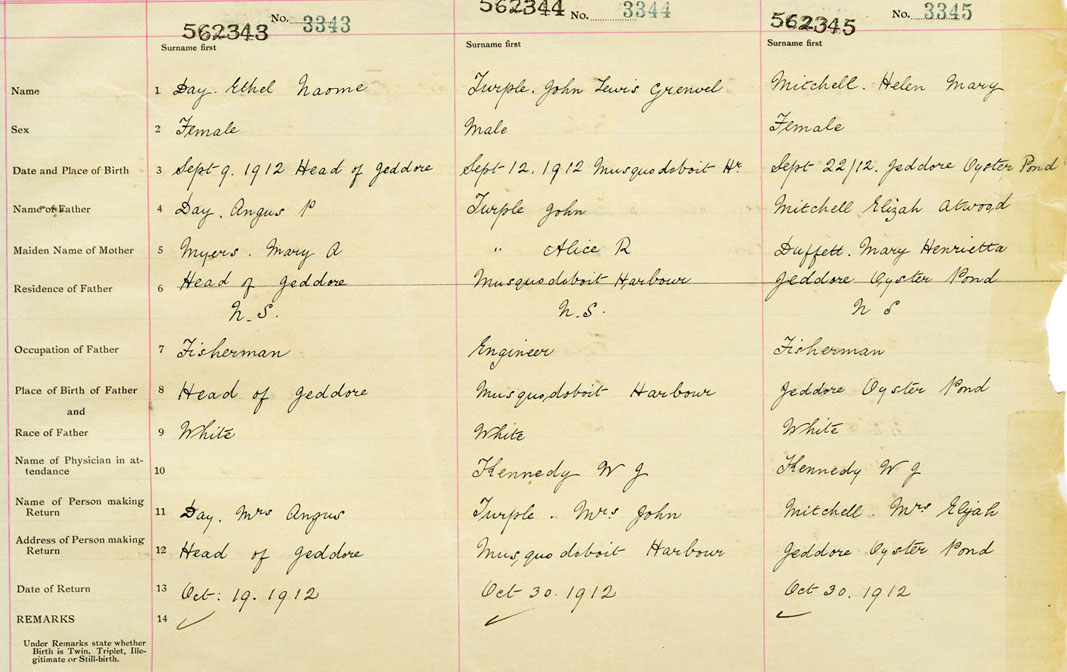 562343 No. 3343 562344 No. 3344 562345 No. 3345
Surname first Surname first Surname first
Name 1 Day. Ethel Naome Turple. John Lewis Grenvel Mitchell. Helen Mary
Sex 2 Female Male Female
Date and Place of Birth 3 Sept 9. 1912 Head of Jeddore Sept 12. 1912 Musquodoboit Hr. Sept 22/12. Jeddore Oyster Pond
Name of Father 4 Day. Angus P Turple John Mitchell Elijah Atwood
Maiden Name of Mother 5 Myers. Mary A " Alice R Duffett. Mary Henrietta
Residence of Father 6 Head of Jeddore Musquodoboit Harbour Jeddore Oyster Pond
N.S. N.S. N S
Occupation of Father 7 Fisherman Engineer Fisherman
Place of Birth of Father 8 Head of Jeddore Musquodoboit Harbour Jeddore Oyster Pond
and
Race of Father 9 White White White
Name of Physician in at-
tendance 10 Kennedy W J Kennedy W J
Name of Person making
Return 11 Day. Mrs Angus Turple. Mrs John Mitchell. Mrs Elijah
Address of Person making
Return 12 Head of Jeddore Musquodoboit Harbour Jeddore Oyster Pond
Date of Return 13 Oct: 19. 1912 Oct 30. 1912 Oct 30. 1912
REMARKS 14 ✓ ✓ ✓
Under Remarks state whether
Birth is Twin, Triplet, Ille-
gitimate or Still-birth.